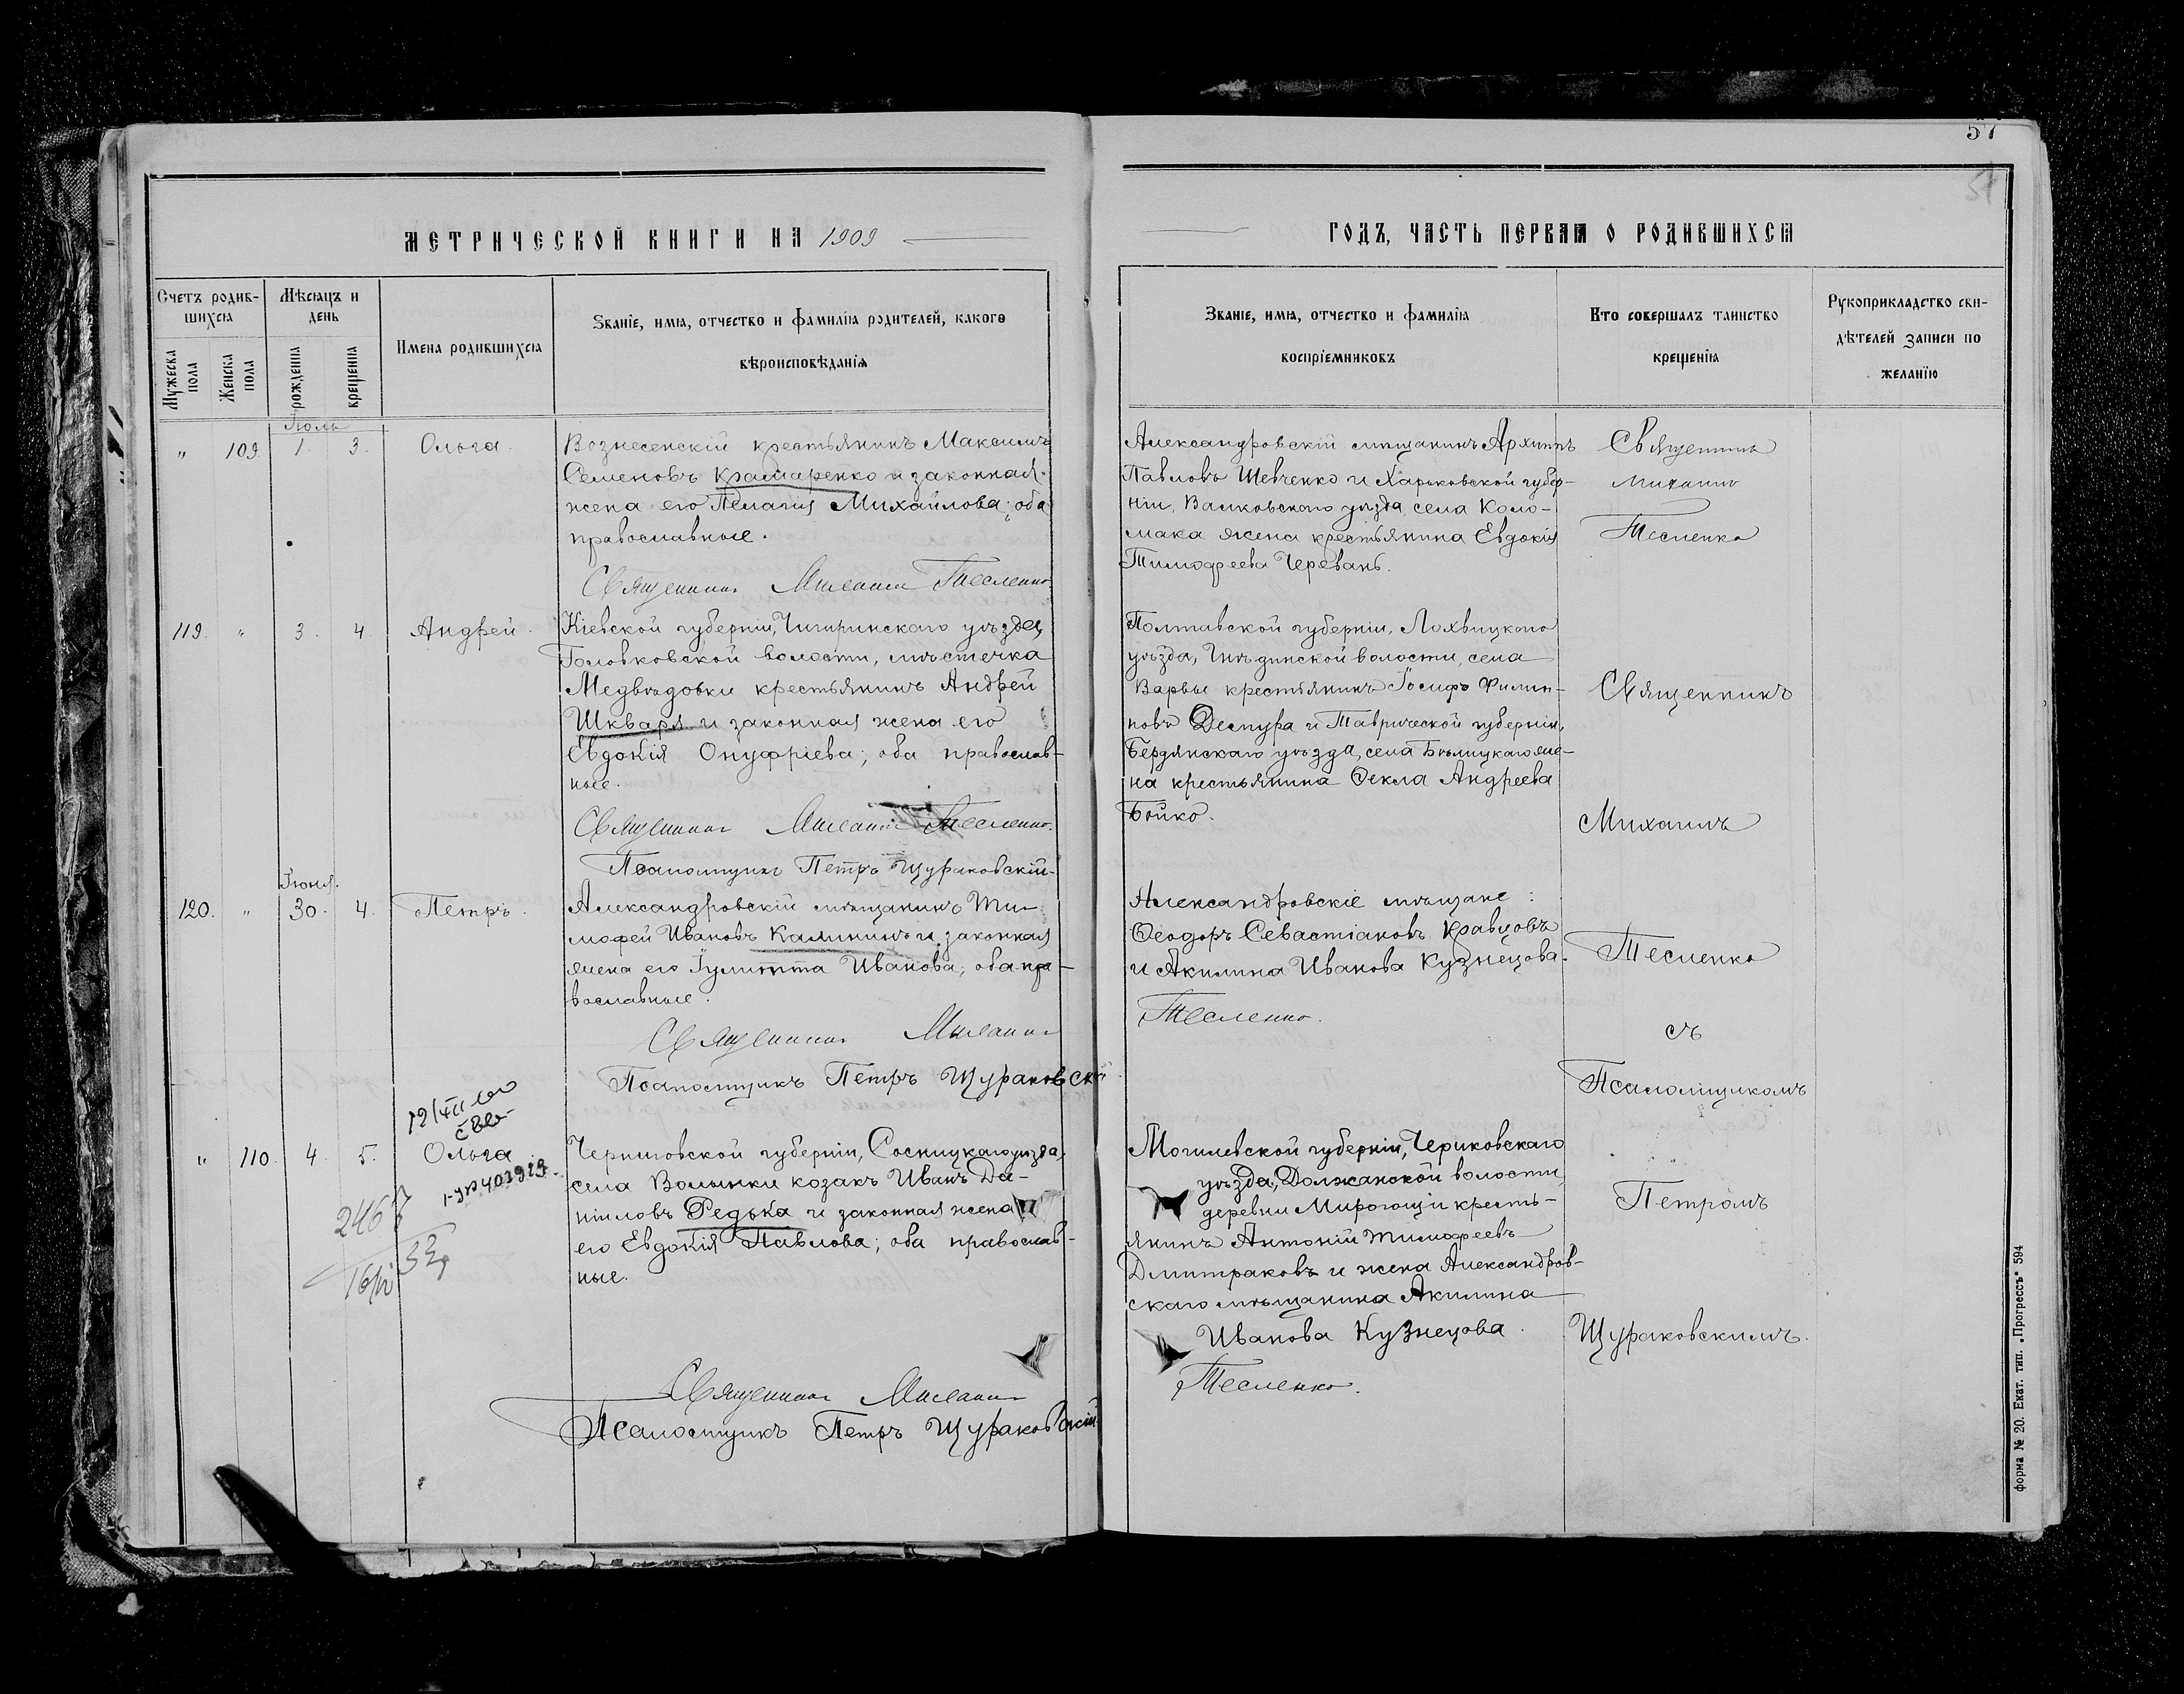 57
57
МЕТРИЧЕСКОЙ КНИГИ НА 1909
ГОДЪ, ЧАСТЬ ПЕРВАЯ О РОДИВШИХСЯ
Счетъ родив-
шихся
Мѣсяцъ и
день
Имена родившихся
Званіе, имя, отчество и фамилія родителей, какого
вѣроисповѣданія
Мужеска
пола
Женска
пола
рожденія
крещенія
Званіе, имя, отчество и фамилія
воспріемниковъ
Кто совершалъ таинство
крещенія
Рукоприкладство сви-
дѣтелей записи по
желанію
Іюль
" 109. 1. 3. Ольга.
Вознесенскій крестьянинъ Максимъ
Семеновъ Крамаренко и законная
жена его Пелагія Михайлова; оба
православные.
Священникъ Михаилъ Тесленко
Александровскій мѣщанинъ Архиппъ
Павловъ Шевченко и Харьковской губер-
ніи, Валковскаго уѣзда, села Коло-
мака жена крестьянина Евдокія
Тимофеева Черевань.
Священникъ
Михаилъ
Тесленко
119. " 3. 4. Андрей.
Кіевской губерніи, Чигиринскаго уѣзда,
Головковской волости, мѣстечка
Медвѣдовки крестьянинъ Андрей
Шкваря и законная жена его
Евдокія Онуфріева; оба православ-
ные.
Священникъ Михаилъ Тесленко.
Псаломщикъ Петръ Щураковскій
Полтавской губерніи, Лохвицкаго
уѣзда, Гнѣдинской волости, села
Варвы крестьянинъ Іосифъ Филип-
повъ Депура и Таврической губерніи,
Бердянскаго уѣзда, села Бѣлицкаго же-
на крестьянина Ѳекла Андреева
Бойко.
Священникъ
Михаилъ
Іюня.
120. " 30. 4. Петръ.
Александровскій мѣщанинъ Ти-
мофей Ивановъ Калининъ и законная
жена его Іулитта Иванова; оба пра-
вославные.
Священникъ Михаилъ
Псаломщикъ Петръ Щураковскій
Александровскіе мѣщане:
Ѳеодоръ Севастіановъ Кравцовъ
и Акилина Иванова Кузнецова.
Тесленко.
Тесленко
съ
Псаломщикомъ
" 110. 4. 5. Ольга
Черниговской губерніи, Сосницкаго уѣзда,
села Волынки козакъ Иванъ Да-
ніиловъ Редька и законная жена
его Евдокія Павлова; оба православ-
ные.
Священникъ Михаилъ
Псаломщикъ Петръ Щураковскій
Могилевской губерніи, Чериковскаго
уѣзда, Должанской волости,
деревни Мирогощи кресть-
янинъ Антоній Тимофеевъ
Дмитраковъ и жена Александров-
скаго мѣщанина Акилина
Иванова Кузнецова.
Тесленко.
Петромъ
Щураковскимъ.
2467
форма № 20. Екат. тип. „Прогрессъ" 594